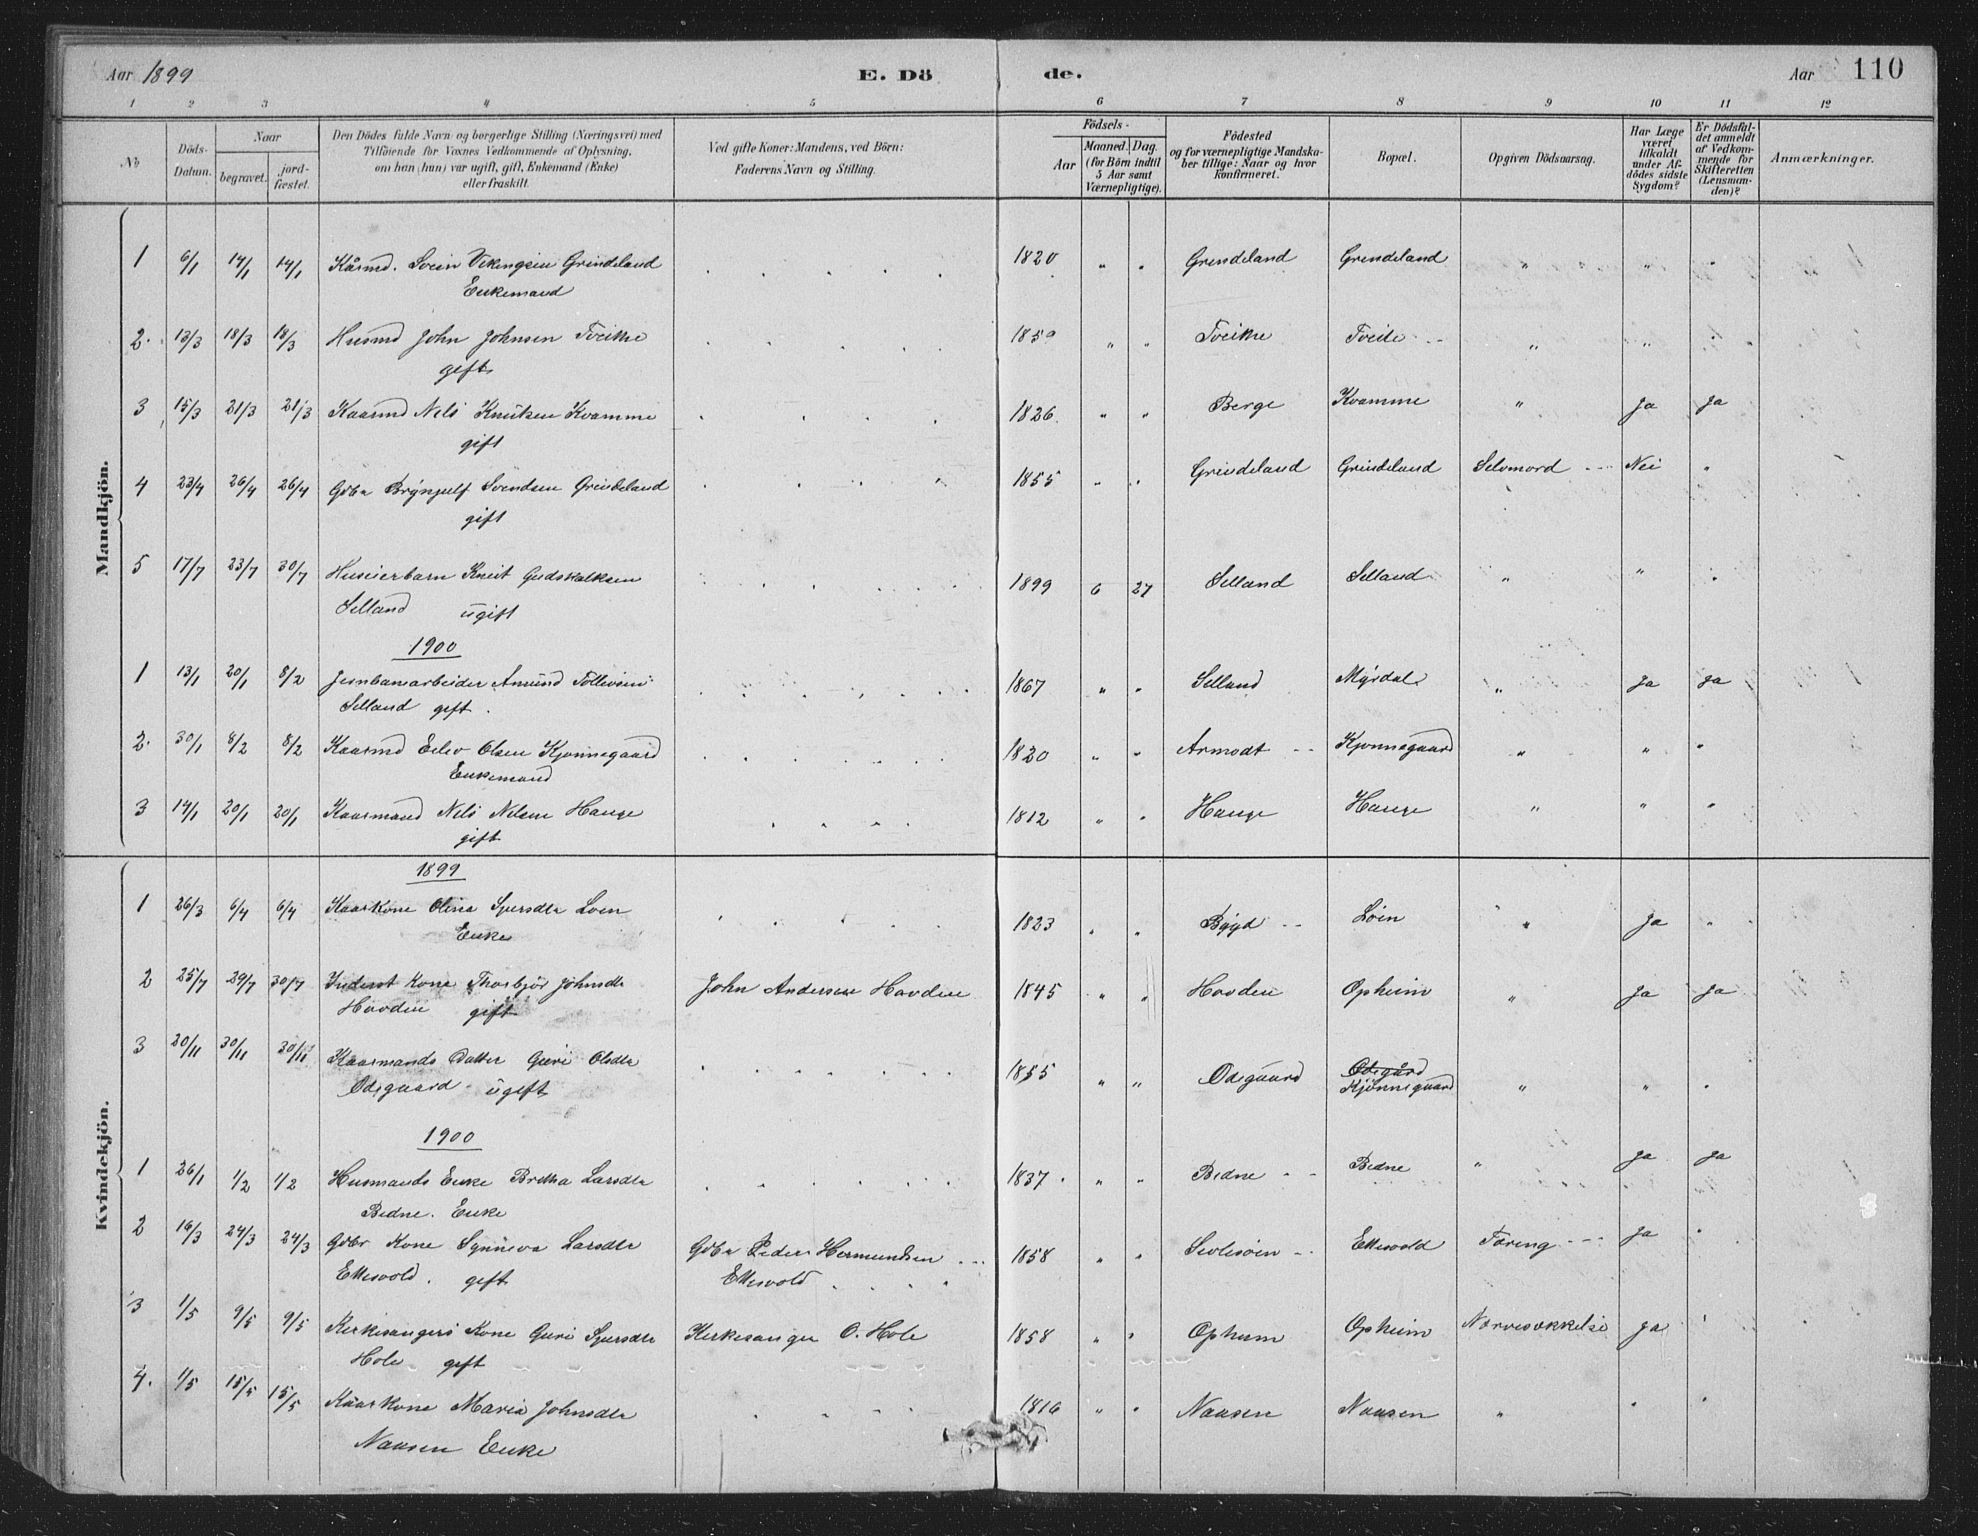 Aar 1899 E. Dö de. Aar 110
1 2 3 4 5 6 7 8 9 10 11 12
№
Döds-Datum.
Naar
begravet.
jord-fæstet.
Den Dödes fulde Navn og borgerlige Stilling (Næringsvei) med
Tilföiende for Voxnes Vedkommende af Oplysning,
om han (hun) var ugift, gift, Enkemand (Enke)
eller fraskilt.
Ved gifte Koner: Mandens, ved Börn:
Faderens Navn og Stilling.
Födsels-
Aar
Maaned. Dag.
(for Börn indtil
5 Aar samt
Værnepligtige).
Födested
og for værnepligtige Mandska-
ber tillige: Naar og hvor
konfirmeret.
Bopæl.
Opgiven Dödsaarsag.
Har Læge
været
tilkaldt
under Af-
dödes sidste
Sygdom?
Er Dödsfal-
det anmeldt
af Vedkom-
mende for
Skifteretten
(Lensman-
den)?
Anmærkninger.
Mandkjön.
1 6/1 14/1 14/1 Kårmd. Svein Vikingsen Grindeland 1820 " " Grendeland Grendeland " " "
Enkemand
2. 13/3 18/3 18/3 Husmd John Johnsen Tveitne 1850 " " Tveitne Tveite " " "
gift
3 15/3 21/3 21/3 Kaarmd Nils Knutsen Kvamme 1826 " " Berge Kvamme " Ja Ja
gift
4 23/4 26/4 26/4 Gdbr Brynjulf Svendsen Grindeland 1855 " " Grindeland Grindeland Selvmord Nei "
gift
5 17/7 23/7 30/7 Huseierbarn Knut Gudskalksen 1899 6 27 Selland Selland " " "
Selland ugift
1900
1 13/1 20/1 8/2 Jernbanearbeider Amund Tollivsen 1867 " " Selland Myrdal " Ja Ja
Selland gift.
2. 30/1 8/2 8/2 Kaarmd Eilev Olsen Kjønnegaard 1820 " " Armodt Kjønnegaard " " "
Enkemand
3 14/1 20/1 20/1 Kaarmand Nils Nilsen Hauge 1812 " " Hauge Hauge " " "
gift
Kvindekjön.
1899
1 26/3 6/4 6/4 Kaarkone Olina Sjursdtr Loen 1823 " " Bygd Löen " Ja "
Enke
2 25/7 29/7 30/7 Inderst Kone Thorbjør Johnsdtr John Andersen Hovden 1845 " " Hovden Opheim " Ja Ja
Hovden gift
3 20/11 30/11 30/11 Kaarmands Datter Guri Olsdtr 1855 " " Odsgaard Odsgård
Odsgaard ugift Kjönnegaard " " "
1900
1 26/1 1/2 1/2 Husmands Enke Britha Larsdtr 1837 " " Bidne Bidne " Ja Ja
Bidne. Enke
2 16/3 24/3 24/3 Gdbr Kone Synneva Larsdtr Gdbr Peder Hermundsen 1858 " " Ekesvold Tæring Ja "
Ekesvold. gift Ekesvold
3 1/5 9/5 9/5 Kirkesangers Kone Guri Sjursdtr Kirkesanger O. Hole 1858 " " Opheim Opheim Nervesvækkelse Ja "
Hole gift
4. 1/5 15/5 15/5 Kaarkone Maria Johnsdtr 1816 " " Naasen Naasen " " "
Naasen Enke